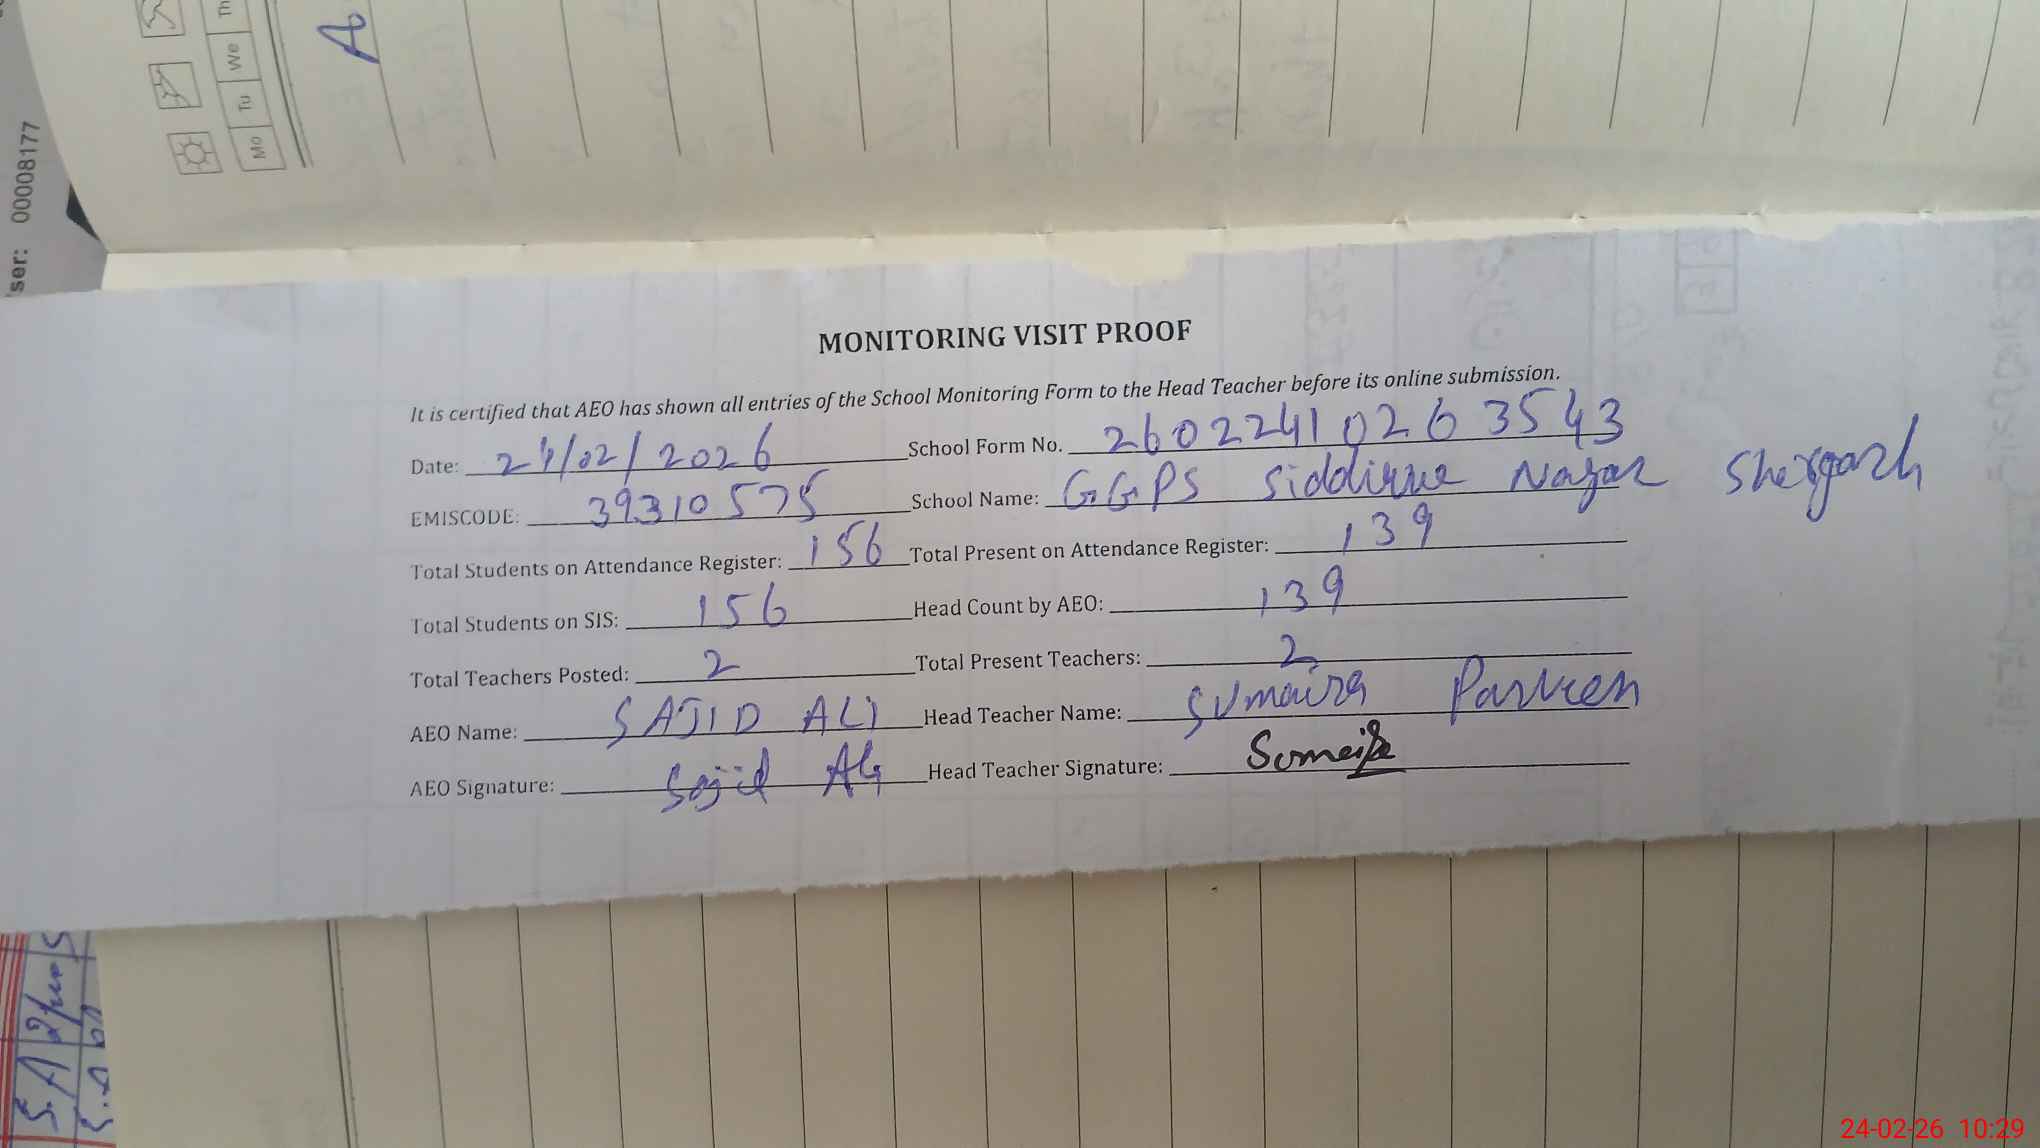 Mo Tu We Th
A
ser: 00008177
MONITORING VISIT PROOF
It is certified that AEO has shown all entries of the School Monitoring Form to the Head Teacher before its online submission.
Date: 24/02/2026 School Form No. 26022410263543
EMISCODE: 39310575 School Name: GGPS Siddique Nagar Shergarh
Total Students on Attendance Register: 156 Total Present on Attendance Register: 139
Total Students on SIS: 156 Head Count by AEO: 139
Total Teachers Posted: 2 Total Present Teachers: 2
AEO Name: SAJID ALI Head Teacher Name: Sumaira Parveen
AEO Signature: Sajid Ali Head Teacher Signature: Sumaira
24-02-26 10:29